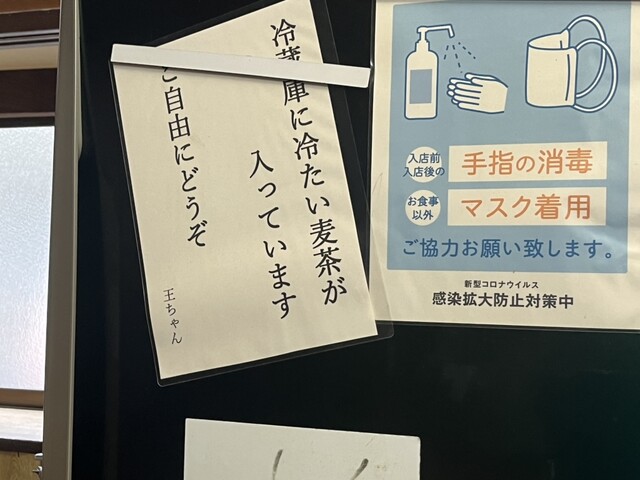 冷蔵庫に冷たい麦茶が
入っています
ご自由にどうぞ
王ちゃん
入店前
入店後の
手指の消毒
お食事
以外
マスク着用
ご協力お願い致します。
新型コロナウイルス
感染拡大防止対策中